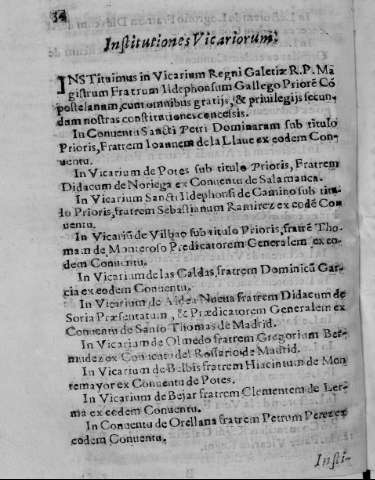 34
Institutiones Vicariorum.
INSTituimus in Vicarium Regni Galetiæ R.P. Ma
gistrum Fratrum Ildephonsum Gallego Priorē Cō
postelanum, cum omnibus gratijs, & priuilegijs secun
dum nostras constitutiones concessis.
In Conuentu Sancti Petri Dominarum sub titulo
Prioris, Fratrem Ioannem de la Llaue ex eodem Con-
uentu.
In Vicarium de Potes sub titulo Prioris, Fratrem
Didacum de Noriega ex Conuentu de Salamanca.
In Vicarium Sancti Ildephonsi de Camino sub titu-
lo Prioris, fratrem Sebastianum Ramirez ex eodē Con
uentu.
In Vicariū de Vilbao sub titulo Prioris, fratrē Tho-
mam de Monteroso Predicatorem Generalem ex eo-
dem Conuentu.
In Vicarium de las Caldas, fratrem Dominicū Gar-
cia ex eodem Conuentu.
In Vicarium de Aldea Nueua fratrem Didacum de
Soria Præsentatum, & Prædicatorem Generalem ex
Conuentu de Santo Thomas de Madrid.
In Vicariam de Olmedo fratrem Gregorium Ber-
mudez ex Conuentu del Rossario de Madrid.
In Vicarium de Belbis fratrem Hiacintum de Mon
temayor ex Conuentu de Potes.
In Vicarium de Bejar fratrem Clementem de Ler-
ma ex eodem Conuentu.
In Conuentu de Orellana fratrem Petrum Perez ex
eodem Conuentu.
Insti-